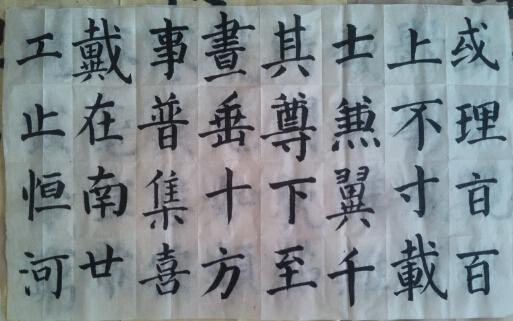 或理百
上不寸載
士兼翼千
其尊下至
晝垂十方
事普集喜
戴在南廿
工止恒河